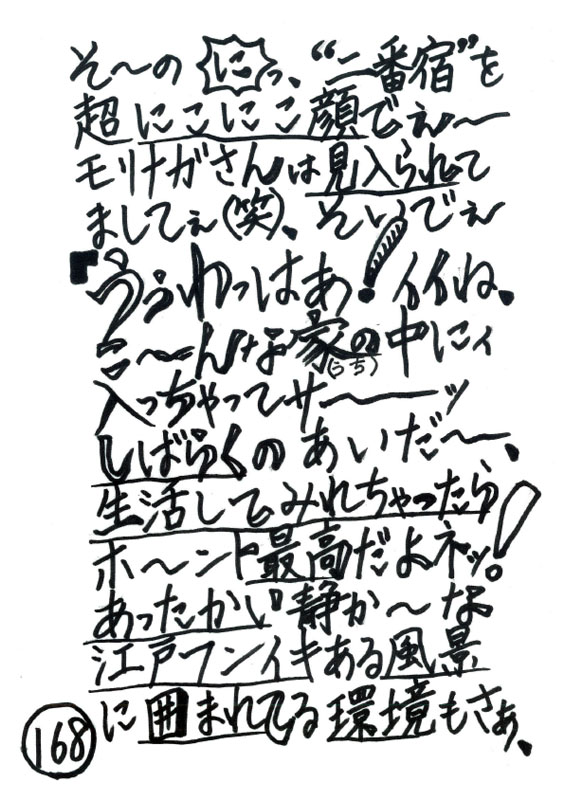 そ〜の にっ、“二番宿”を
超にこにこ顔でぇ〜
モリナガさんは見入られて
ましてぇ(笑)、そいでぇ
『うぅわっはあ!イイね、
こ〜んな家の中にィ
(うち)
入っちゃってサ〜ッ
しばらくのあいだ〜、
生活してみれちゃったら
ホ〜ント最高だよネッ!
あったかい静か〜な
江戸フンイキある風景
に囲まれてる環境もさぁ、
168